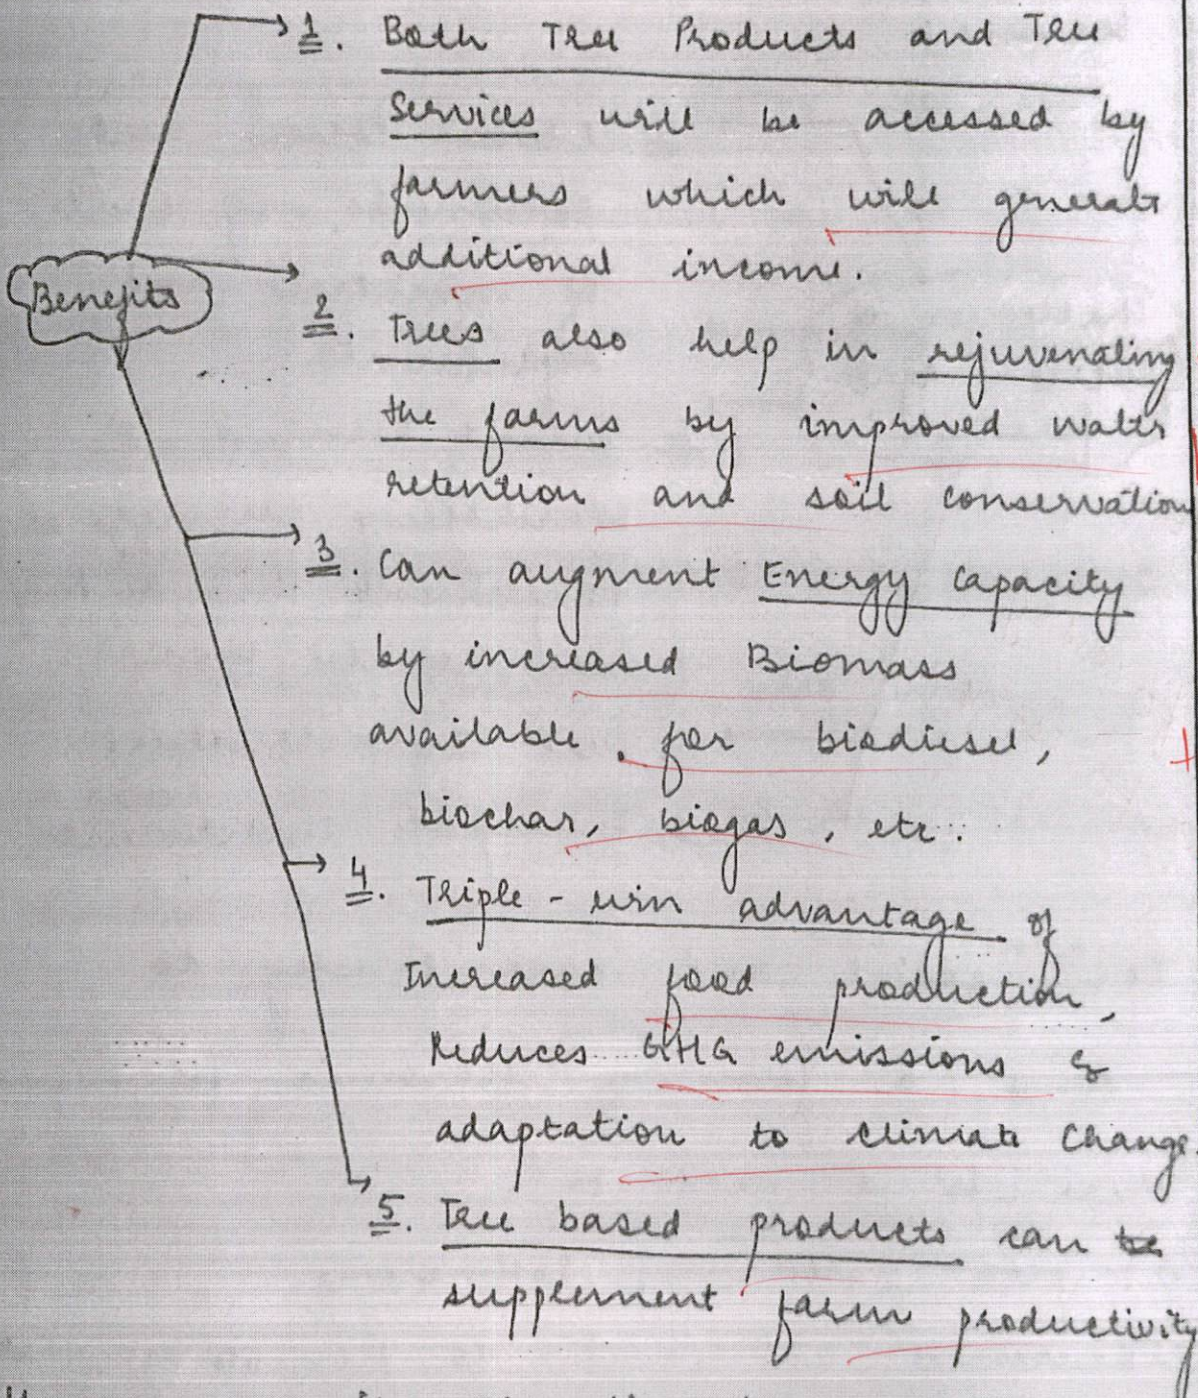 1. Both Tree Products and Tree
Services will be accessed by
farmers which will generate
additional income.
Benefits
2. Trees also help in rejuvenating
the farms by improved water
retention and soil conservation
3. Can augment Energy Capacity
by increased Biomass
available for biodiesel,
biochar, biogas, etc.
4. Triple-win advantage of
Increased food production,
Reduces GHG emissions &
adaptation to climate change.
5. Tree based products can
supplement farm productivity